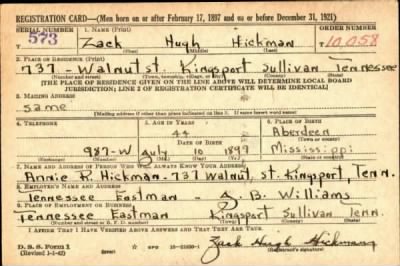 REGISTRATION CARD—(Men born on or after February 17, 1897 and on or before December 31, 1921)
SERIAL NUMBER 1. NAME (Print) ORDER NUMBER
T 573 Zack Hugh Hickman T 10,058
(First) (Middle) (Last)
2. PLACE OF RESIDENCE (Print)
737 - Walnut st. Kingsport Sullivan Tennessee
(Number and street) (Town, township, village, or city) (County) (State)
[THE PLACE OF RESIDENCE GIVEN ON THE LINE ABOVE WILL DETERMINE LOCAL BOARD
JURISDICTION; LINE 2 OF REGISTRATION CERTIFICATE WILL BE IDENTICAL]
3. MAILING ADDRESS
same
[Mailing address if other than place indicated on line 2. If same insert word same]
4. TELEPHONE 5. AGE IN YEARS 6. PLACE OF BIRTH
44 Aberdeen
DATE OF BIRTH (Town or county)
987-W July 10 1897 Mississippi
(Exchange) (Number) (Mo.) (Day) (Yr.) (State or country)
7. NAME AND ADDRESS OF PERSON WHO WILL ALWAYS KNOW YOUR ADDRESS
Annie R. Hickman - 737 Walnut. st. Kingsport, Tenn.
8. EMPLOYER'S NAME AND ADDRESS
Tennessee Eastman - B. Williams
9. PLACE OF EMPLOYMENT OR BUSINESS
Tennessee Eastman Kingsport Sullivan Tenn.
(Number and street or R. F. D. number) (Town) (County) (State)
I AFFIRM THAT I HAVE VERIFIED ABOVE ANSWERS AND THAT THEY ARE TRUE.
D. S. S. Form 1
(Revised 1-1-42) GPO Zack Hugh Hickman
(Registrant's signature)